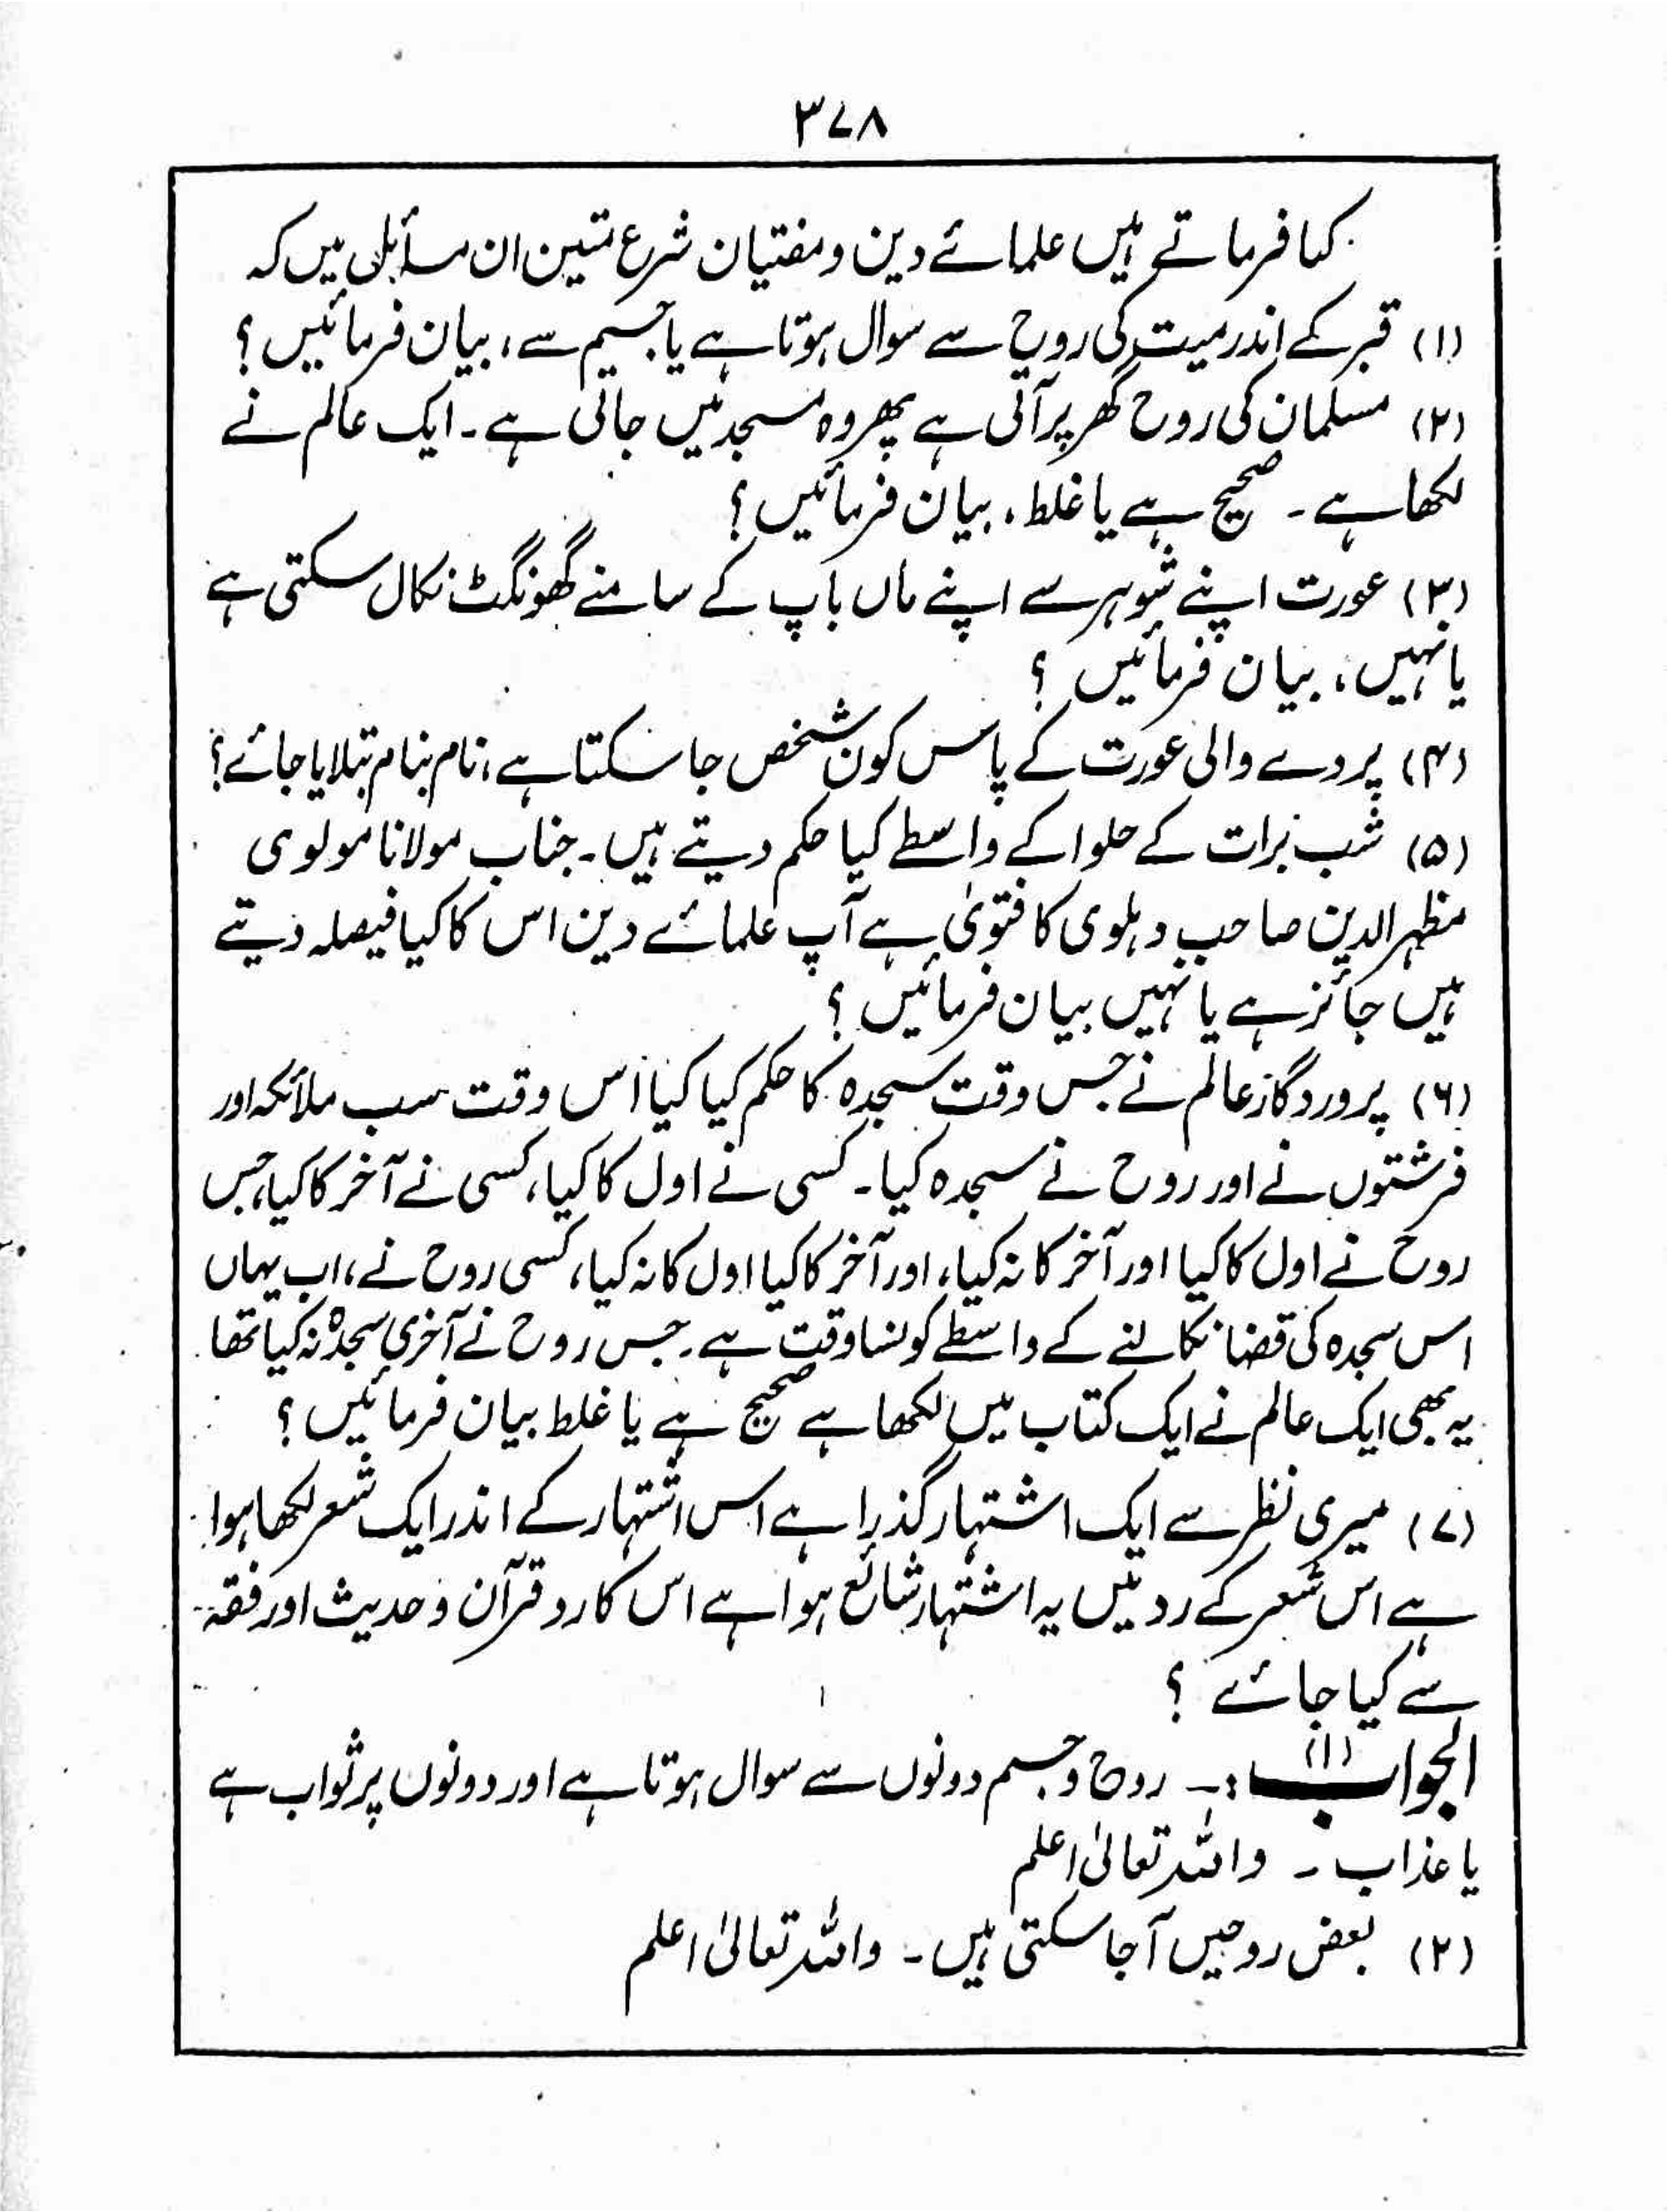 ۳۷۸
کیا فرماتے ہیں علمائے دین و مفتیان شرع متین ان مسائل میں کہ
(۱) قبر کے اندر میت کی روح سے سوال ہوتا ہے یا جسم سے، بیان فرمائیں؟
(۲) مسلمان کی روح گھر پر آتی ہے پھر وہ مسجد میں جاتی ہے۔ ایک عالم نے
لکھا ہے۔ صحیح ہے یا غلط، بیان فرمائیں؟
(۳) عورت اپنے شوہر سے اپنے ماں باپ کے سامنے گھونگٹ نکال سکتی ہے
یا نہیں، بیان فرمائیں؟
(۴) پردے والی عورت کے پاس کون شخص جا سکتا ہے، نام بنام بتلایا جائے؟
(۵) شب برات کے حلوا کے واسطے کیا حکم دیتے ہیں۔ جناب مولانا مولوی
مظہر الدین صاحب دہلوی کا فتویٰ ہے آپ علمائے دین اس کا کیا فیصلہ دیتے
ہیں جائز ہے یا نہیں بیان فرمائیں؟
(۶) پروردگار عالم نے جس وقت سجدہ کا حکم کیا کیا اس وقت سب ملائکہ اور
فرشتوں نے اور روح نے سجدہ کیا۔ کسی نے اول کا کیا، کسی نے آخر کا کیا، جس
روح نے اول کا کیا اور آخر کا نہ کیا، اور آخر کا کیا اول کا نہ کیا، کسی روح نے، اب یہاں
اس سجدہ کی قضا نکالنے کے واسطے کونسا وقت ہے۔ جس روح نے آخری سجدہ نہ کیا تھا
یہ بھی ایک عالم نے ایک کتاب میں لکھا ہے صحیح ہے یا غلط بیان فرمائیں؟
(۷) میری نظر سے ایک اشتہار گذرا ہے اس اشتہار کے اندر ایک شعر لکھا ہوا
ہے اس شعر کے رد میں یہ اشتہار شائع ہوا ہے اس کا رد قرآن و حدیث اور فقہ
سے کیا جائے؟
الجواب (۱) :۔ روح و جسم دونوں سے سوال ہوتا ہے اور دونوں پر ثواب ہے
یا عذاب ۔ واللہ تعالیٰ اعلم
(۲) بعض روحیں آ جا سکتی ہیں۔ واللہ تعالیٰ اعلم